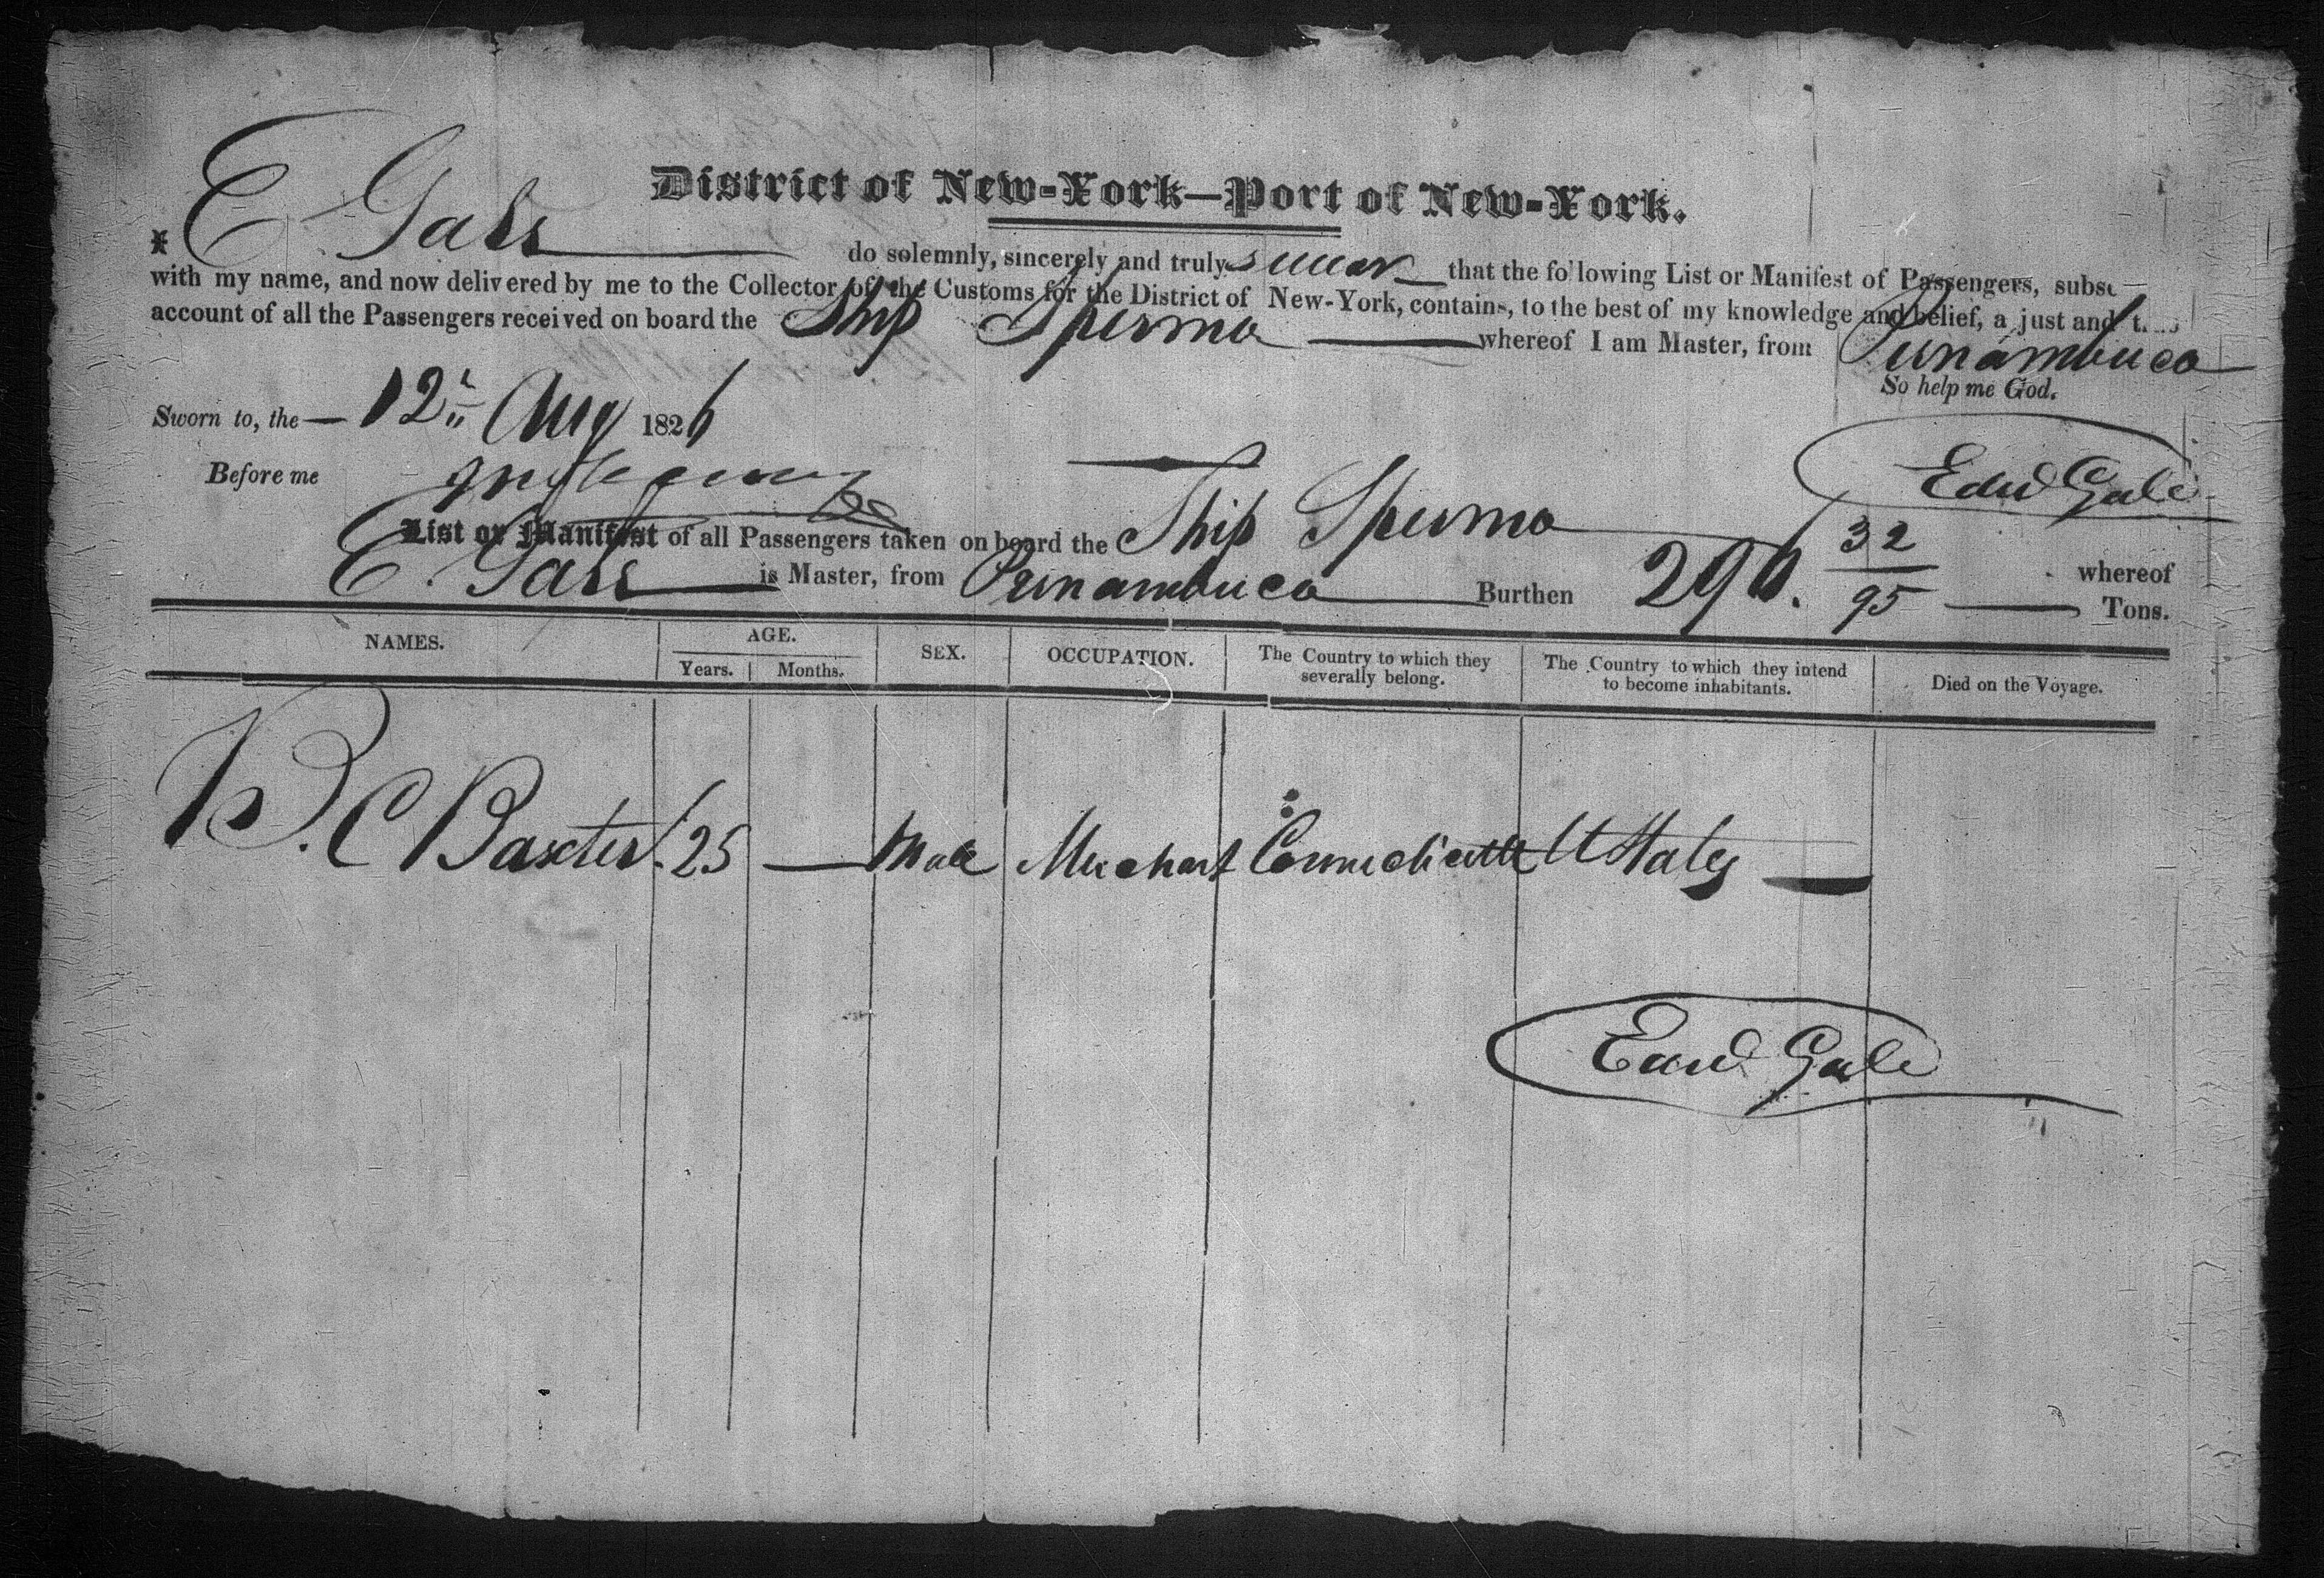 District of New-York—Port of New-York.
I E Gale do solemnly, sincerely and truly swear that the following List or Manifest of Passengers, subsc
with my name, and now delivered by me to the Collector of the Customs for the District of New-York, contains, to the best of my knowledge and belief, a just and t
account of all the Passengers received on board the Ship Sperma whereof I am Master, from Pernambuco
So help me God.
Sworn to, the 12th Aug 1826
Edwd Gale
Before me
List or Manifest of all Passengers taken on board the Ship Sperma whereof
E. Gale is Master, from Pernambuco Burthen 296. 32/95 Tons.
NAMES. AGE. SEX. OCCUPATION. The Country to which they severally belong. The Country to which they intend to become inhabitants. Died on the Voyage.
Years. Months.
C Baxter 25 — Male Merchant U States —
Edwd Gale